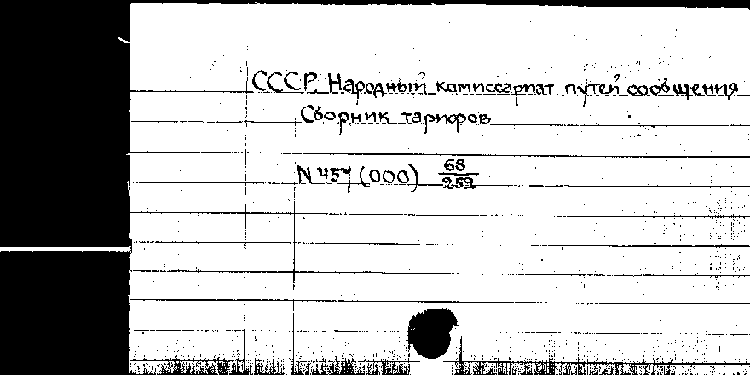 СССР. Народный комиссариат путей сообщения
Сборник тарифов
N 457 (000) 68/252